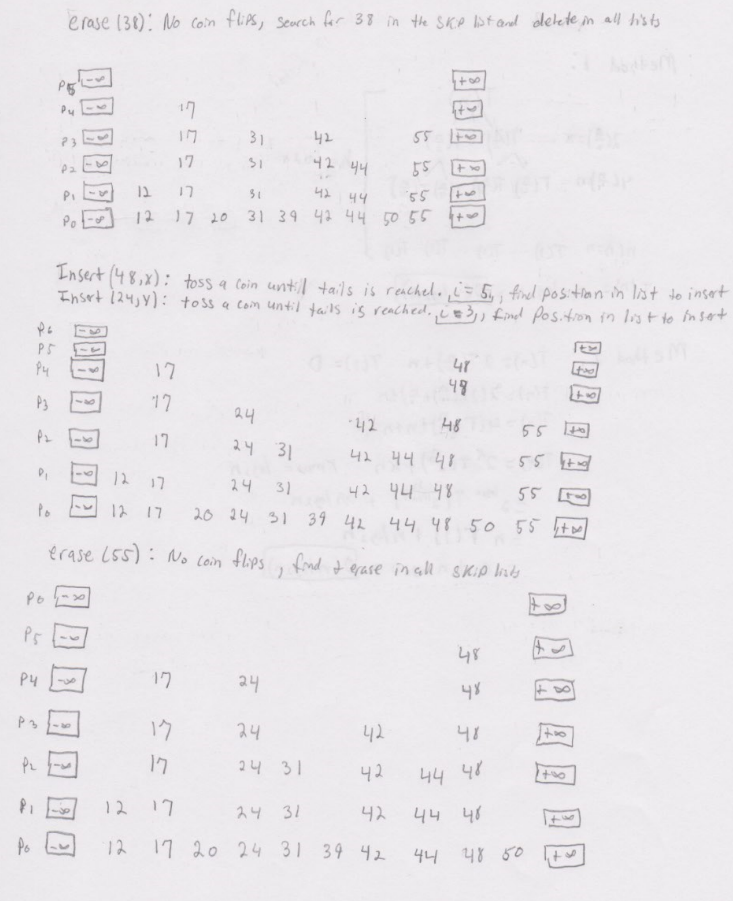 erase (38): No coin flips, search for 38 in the SKIP list and delete in all lists
P5 -∞ +∞
P4 -∞ 17 +∞
P3 -∞ 17 31 42 55 +∞
P2 -∞ 17 31 42 44 55 +∞
P1 -∞ 12 17 31 42 44 55 +∞
P0 -∞ 12 17 20 31 39 42 44 50 55 +∞
Insert (48,x): toss a coin untill tails is reached. i = 5, find position in list to insert
Insert (24,x): toss a coin until tails is reached. i = 3, find position in list to insert
P6 -∞
P5 -∞ 48 +∞
P4 -∞ 17 48 +∞
P3 -∞ 17 24 42 48 +∞
P2 -∞ 17 24 31 42 44 48 55 +∞
P1 -∞ 12 17 24 31 42 44 48 55 +∞
P0 -∞ 12 17 20 24 31 39 42 44 48 50 55 +∞
55 +∞
erase (55): No coin flips, find & erase in all SKIP lists
P6 -∞ +∞
P5 -∞ 48 +∞
P4 -∞ 17 24 48 +∞
P3 -∞ 17 24 42 48 +∞
P2 -∞ 17 24 31 42 44 48 +∞
P1 -∞ 12 17 24 31 42 44 48 +∞
P0 -∞ 12 17 20 24 31 39 42 44 48 50 +∞